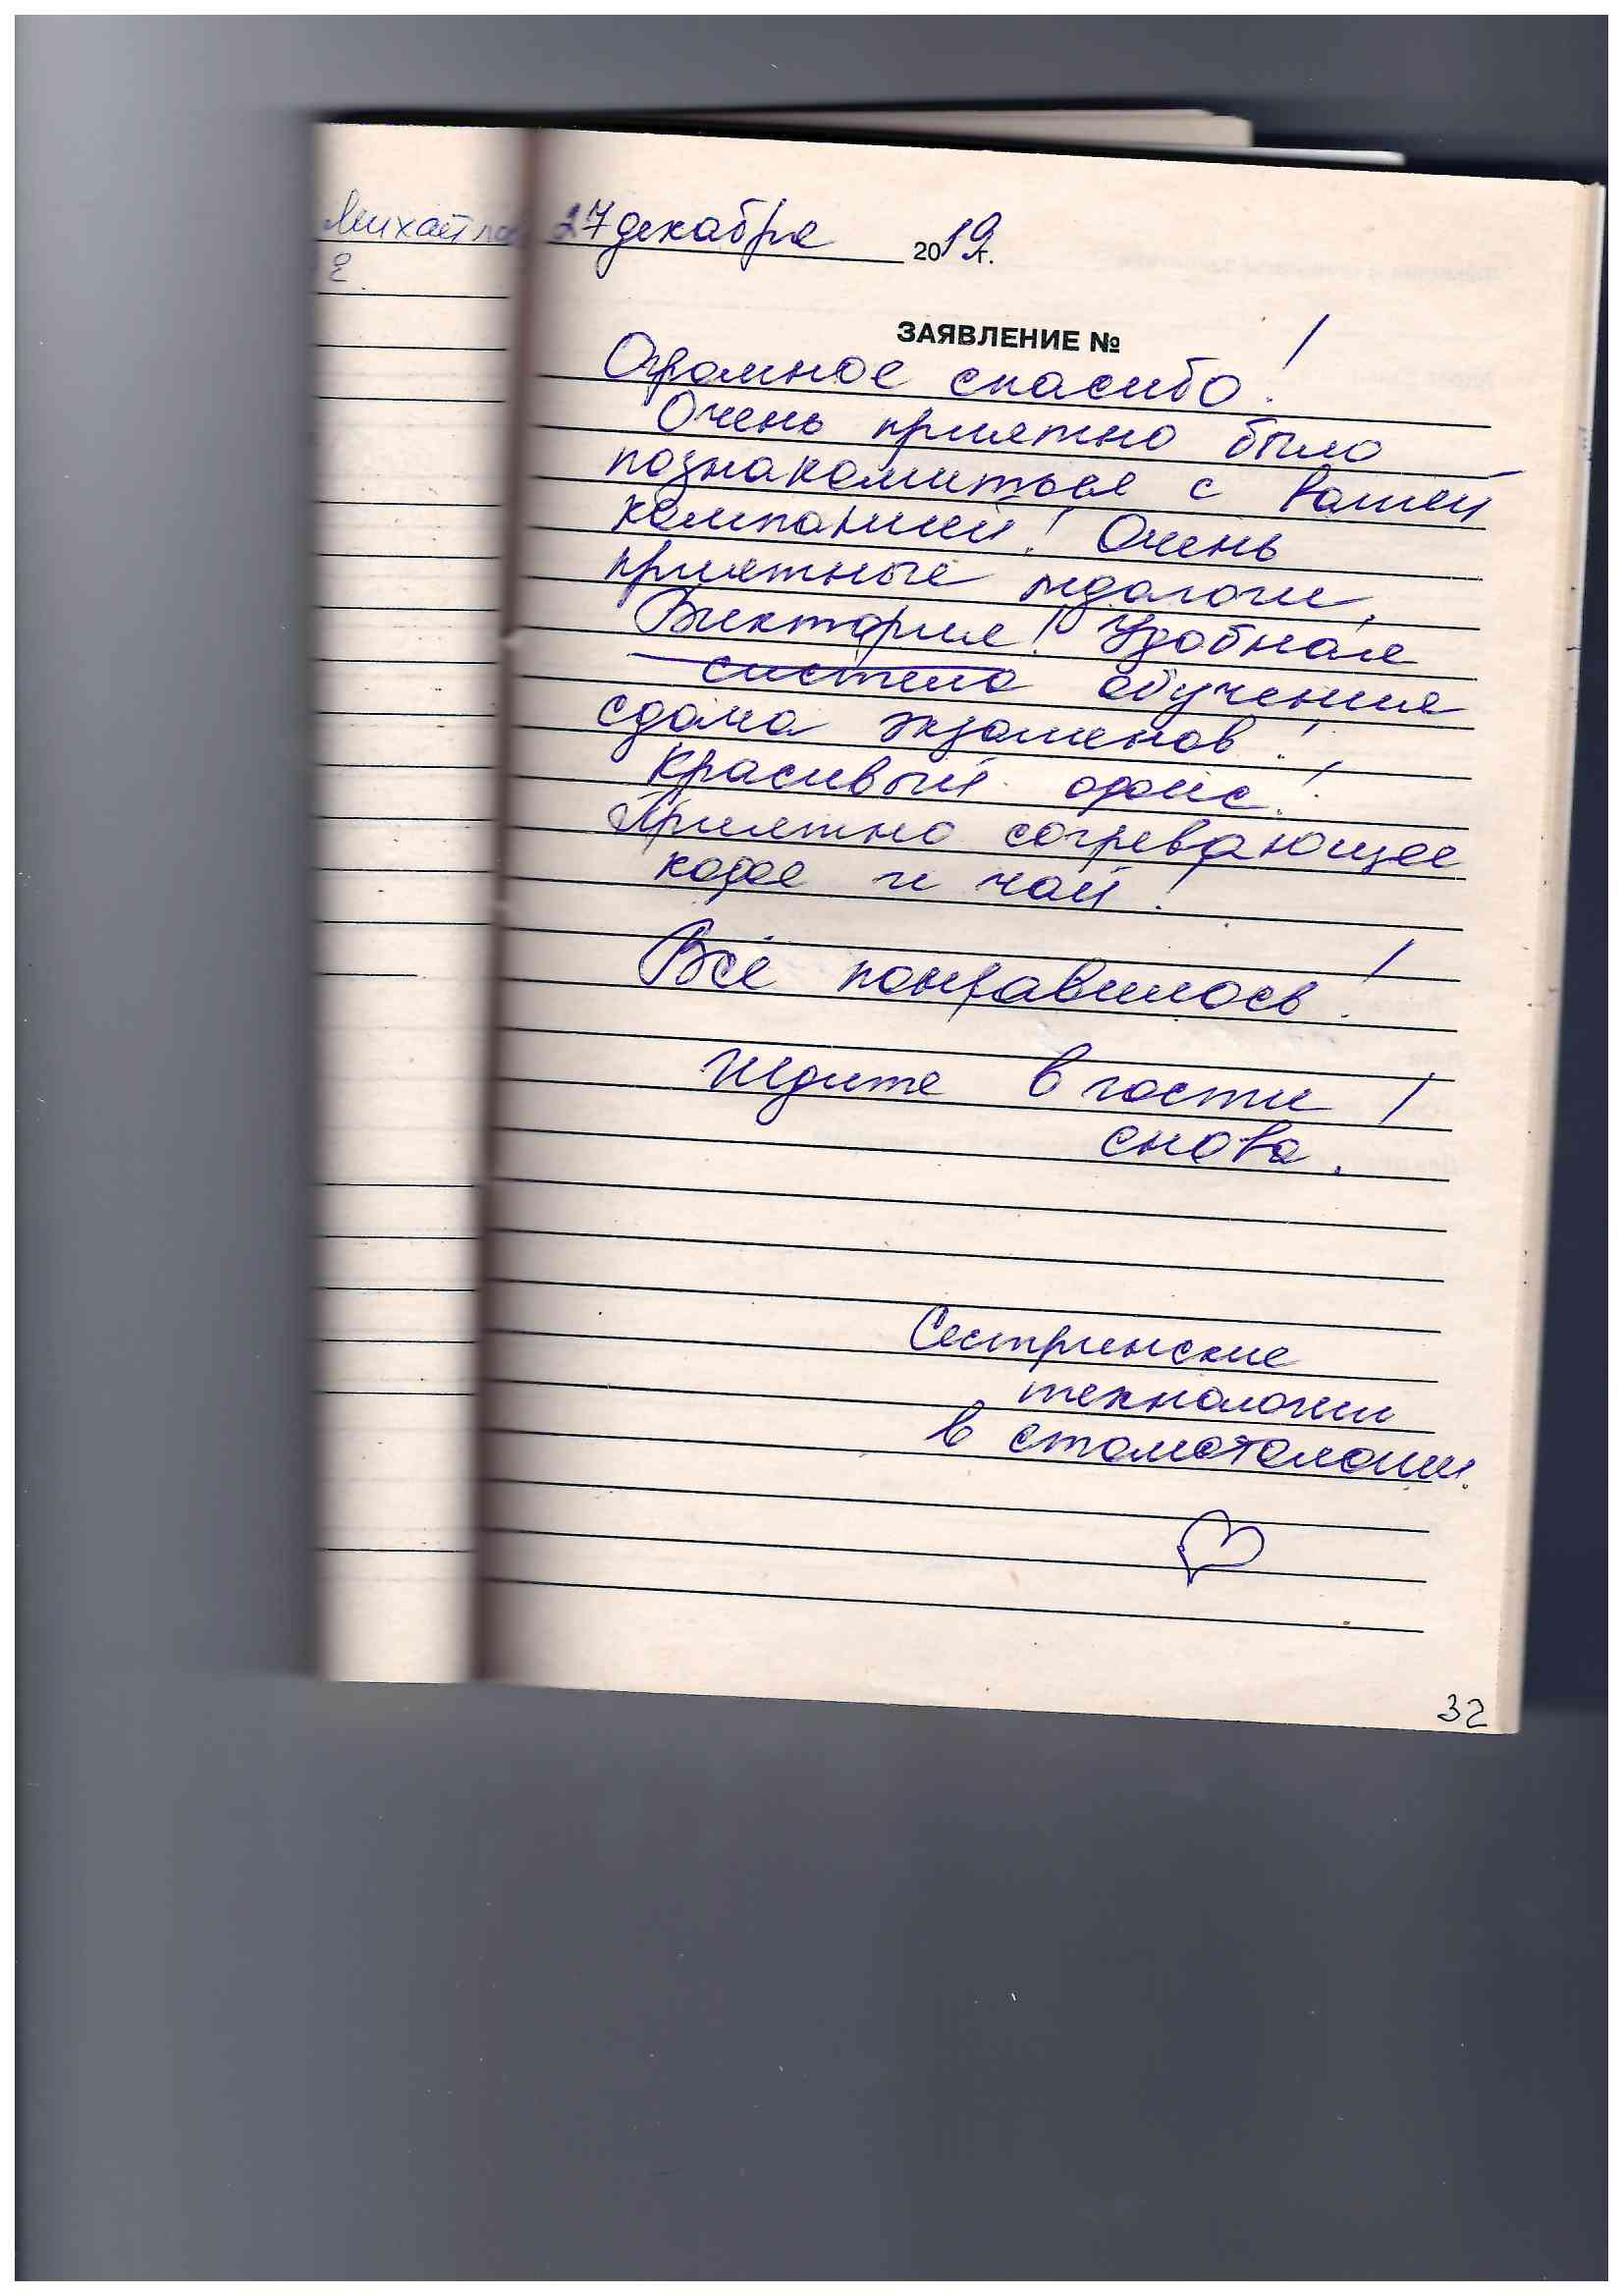 27 декабря 2019г.
Е.
ЗАЯВЛЕНИЕ №
Огромное спасибо!
Очень приятно было
познакомиться с вашей
компанией! Очень
приятные педагоги.
Виктория! Удобная
система обучения
сдача экзаменов!
Красивый офис!
Приятно согревающее
кофе и чай!
Всё понравилось!
Ждите в гости!
снова.
Сестринские
технологии
в стоматологии.
32